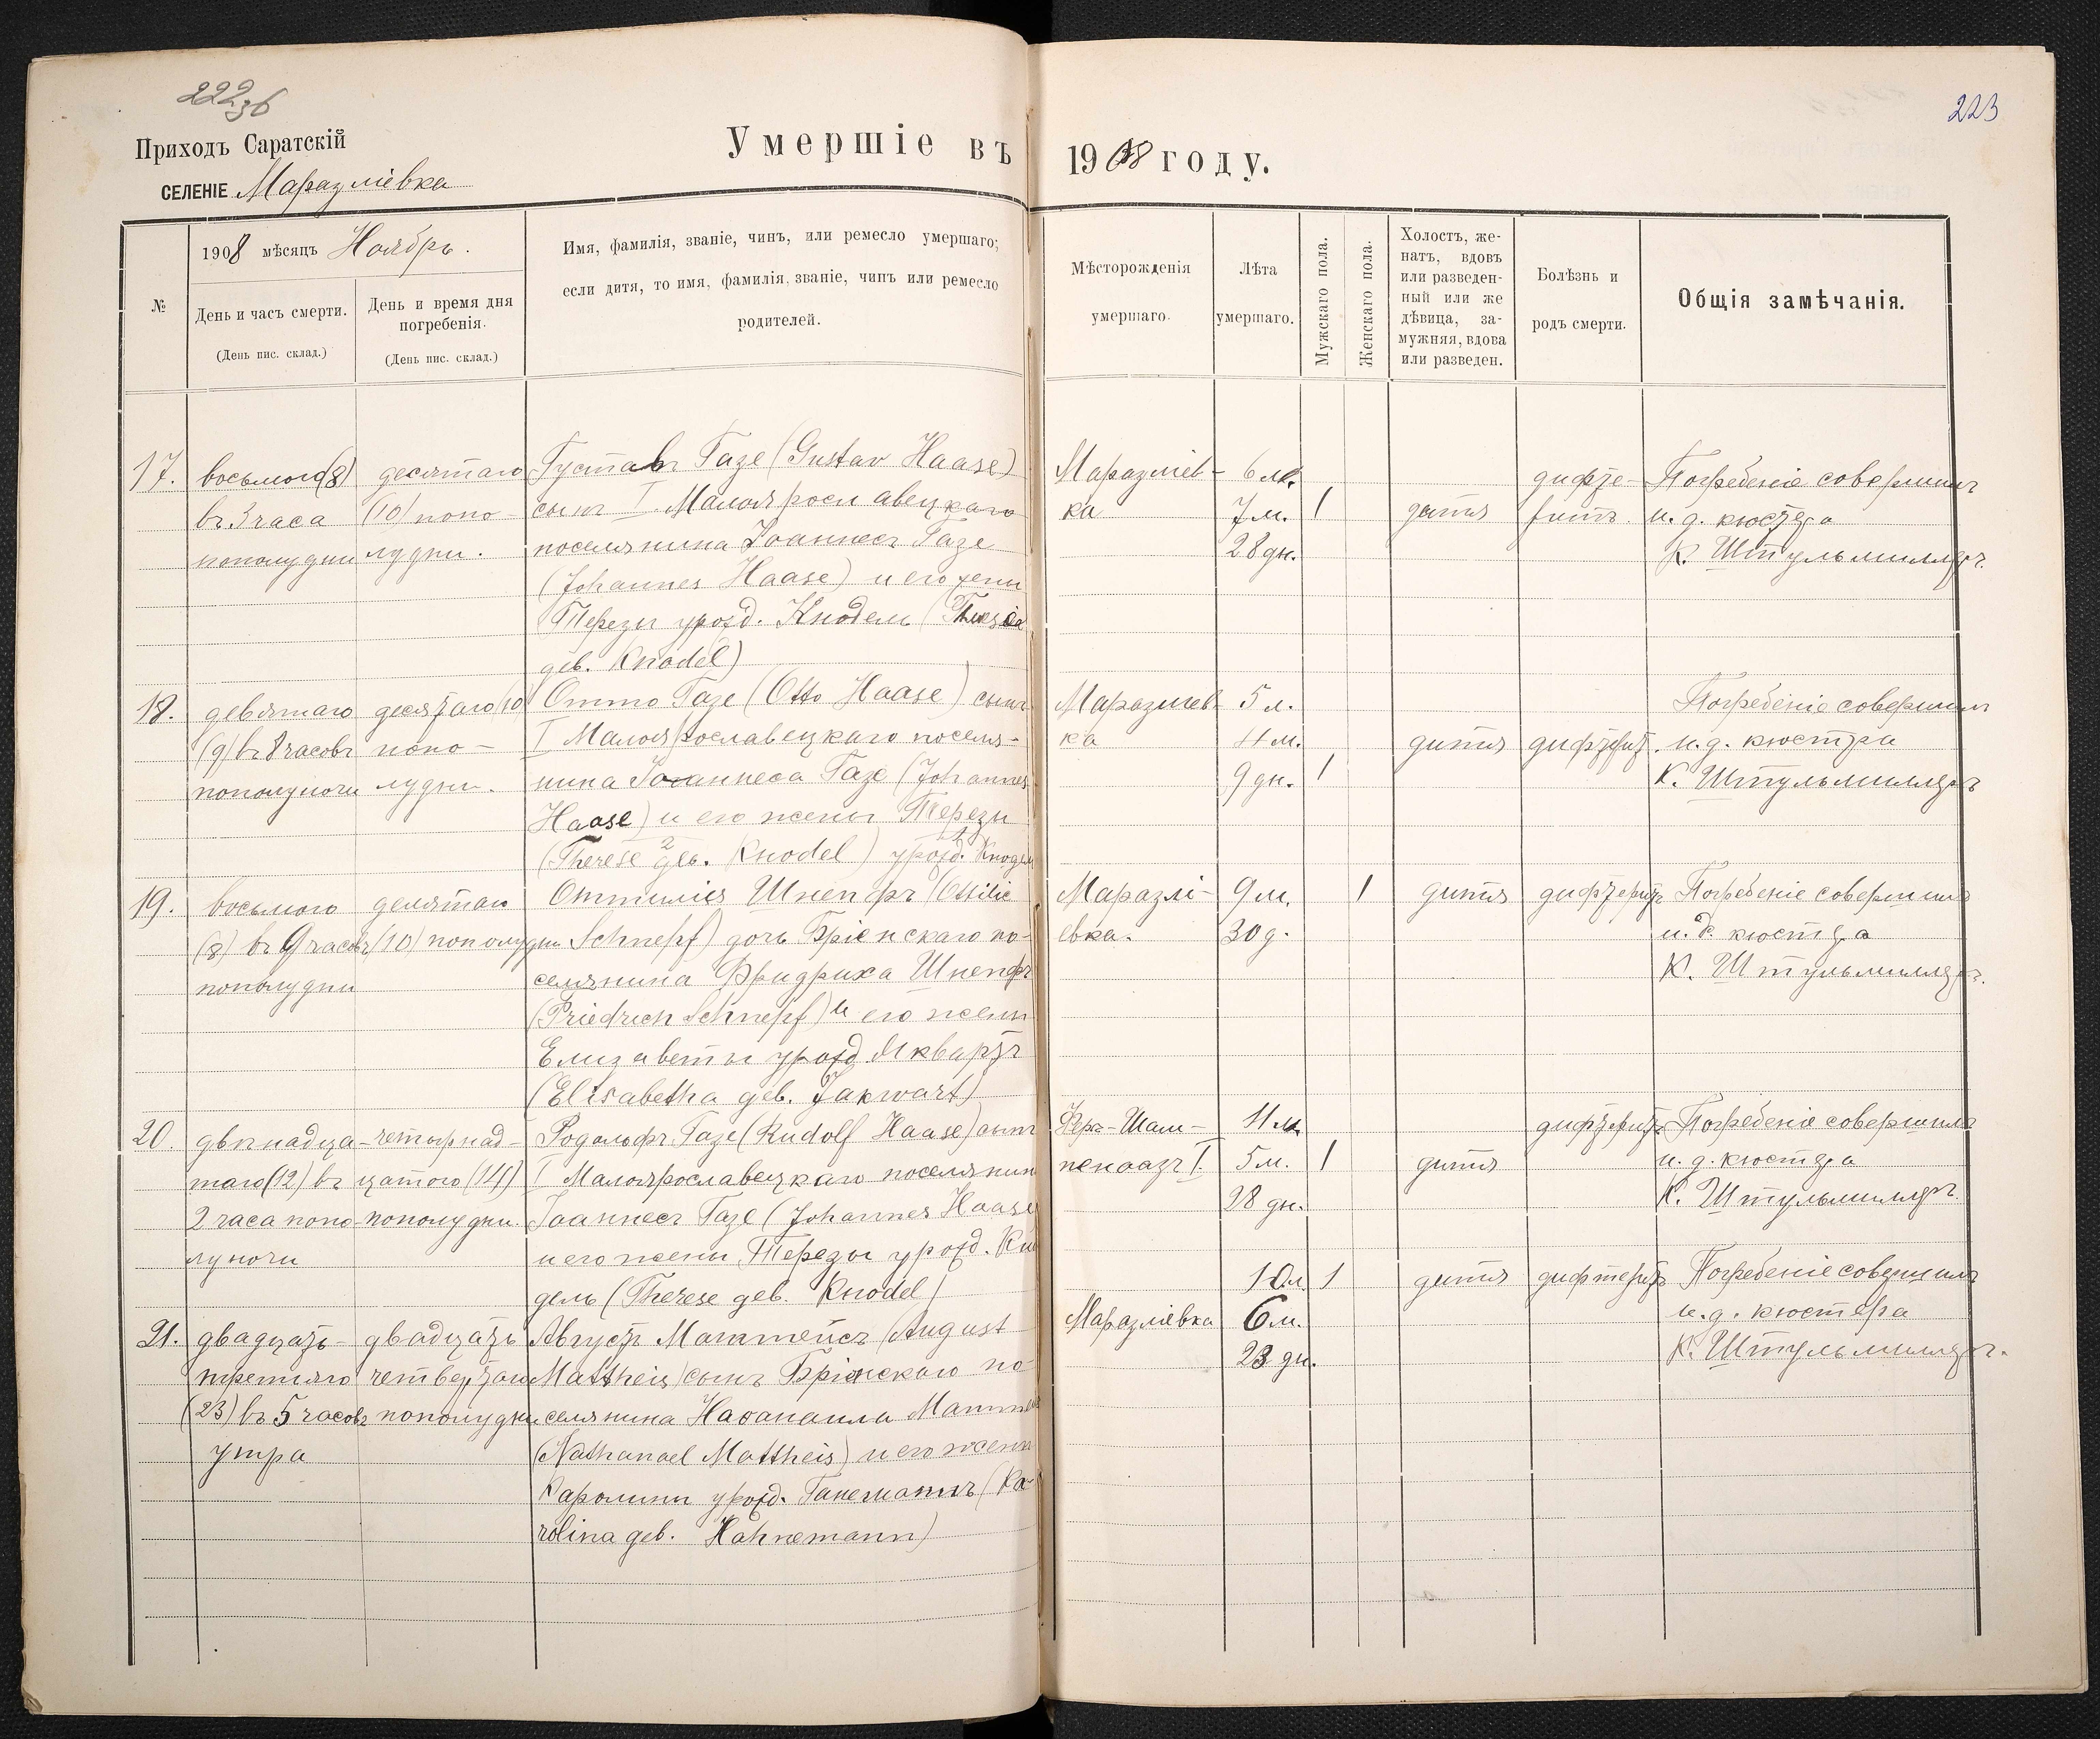 222 об
223
Приходъ Саратскій
Умершіе въ 1908 году.
СЕЛЕНІЕ Маразліевка
№
1908 мѣсяцъ Ноябрь.
День и часъ смерти.
(День пис. склад.)
День и время дня
погребенія.
(День пис. склад.)
Имя, фамилія, званіе, чинъ, или ремесло умершаго;
если дитя, то имя, фамилія, званіе, чинъ или ремесло
родителей.
Мѣсторожденія
умершаго.
Лѣта
умершаго.
Мужскаго пола.
Женскаго пола.
Холостъ, же-
натъ, вдовъ
или разведен-
ный или же
дѣвица, за-
мужняя, вдова
или разведен.
Болѣзнь и
родъ смерти.
Общія замѣчанія.
17. восьмого (8) десятаго Густавъ Газе (Gustav Haase) Маразліев- 6 л. дифте- Погребеніе совершилъ
въ 3 часа (10) попо- сынъ I Малоярославецкаго ка 7 м. 1 дитя ритъ. и. д. кюстера
пополудни лудни. поселянина Іоаннесъ Газе 28 дн. К. Штульмиллеръ.
(Johannes Haase) и его жены
Терезы урожд. Кнодель (
geb. Knodel)
18. девятаго десятаго (10 Отто Газе (Otto Haase) сынъ Маразлiев- 5 л. Погребеніе совершилъ
(9) въ 8 часовъ попо- I Малоярославецкаго поселя- ка 4 м. дитя дифтерит. и. д. кюстера
пополуночи лудни. нина Іоаннеса Газе (Johannes 9 дн. 1 К. Штульмиллеръ
Haase) и его жены Терезы
(Therese geb. Knodel) урожд. Кнодель
19. восьмого десятаго Оттилія Шнепфъ (Ottilie Маразлі- 9 м. 1 дитя дифтеритъ Погребеніе совершилъ
(8) въ 9 часовъ (10) пополудни Schnepf) дочь Бріенскаго по- евка. 30 д. и. д. кюстера
пополудни селянина Фридриха Шнепфъ К. Штульмиллеръ.
(Friedrich Schnepf) и его жены
Елизаветы урожд. Яквартъ
(Elisabetha geb. Jakwart)
20. двѣнадца- четырнад- Родольфъ Газе (Rudolf Haase) сынъ Фер-Шам- 11 л. дифтеритъ Погребеніе совершилъ
таго (12) въ цатого (14) I Малоярославецкаго поселянин пеноазъ I. 5 м. 1 дитя и. д. кюстера
2 часа попо- пополудни. Іоаннесъ Газе (Johannes Haase 28 дн. К. Штульмиллеръ.
луночи и его жены Терезы урожд. Кно
дель (Therese geb. Knodel)
21. двадцать- двадцать Августъ Маттейсъ (August 10 л 1 дитя дифтеритъ Погребеніе совершилъ
третьяго четвертаго Mattheis) сынъ Бріенскаго по- Маразліевка 6 м. и. д. кюстера
(23) въ 5 часовъ пополудни селянина Наѳанаила Маттей 23 дн. К. Штульмиллеръ.
утра (Nathanael Mattheis) и его жены
Каролины урожд. Ганеманнъ (Ka-
rolina geb. Hahnemann)